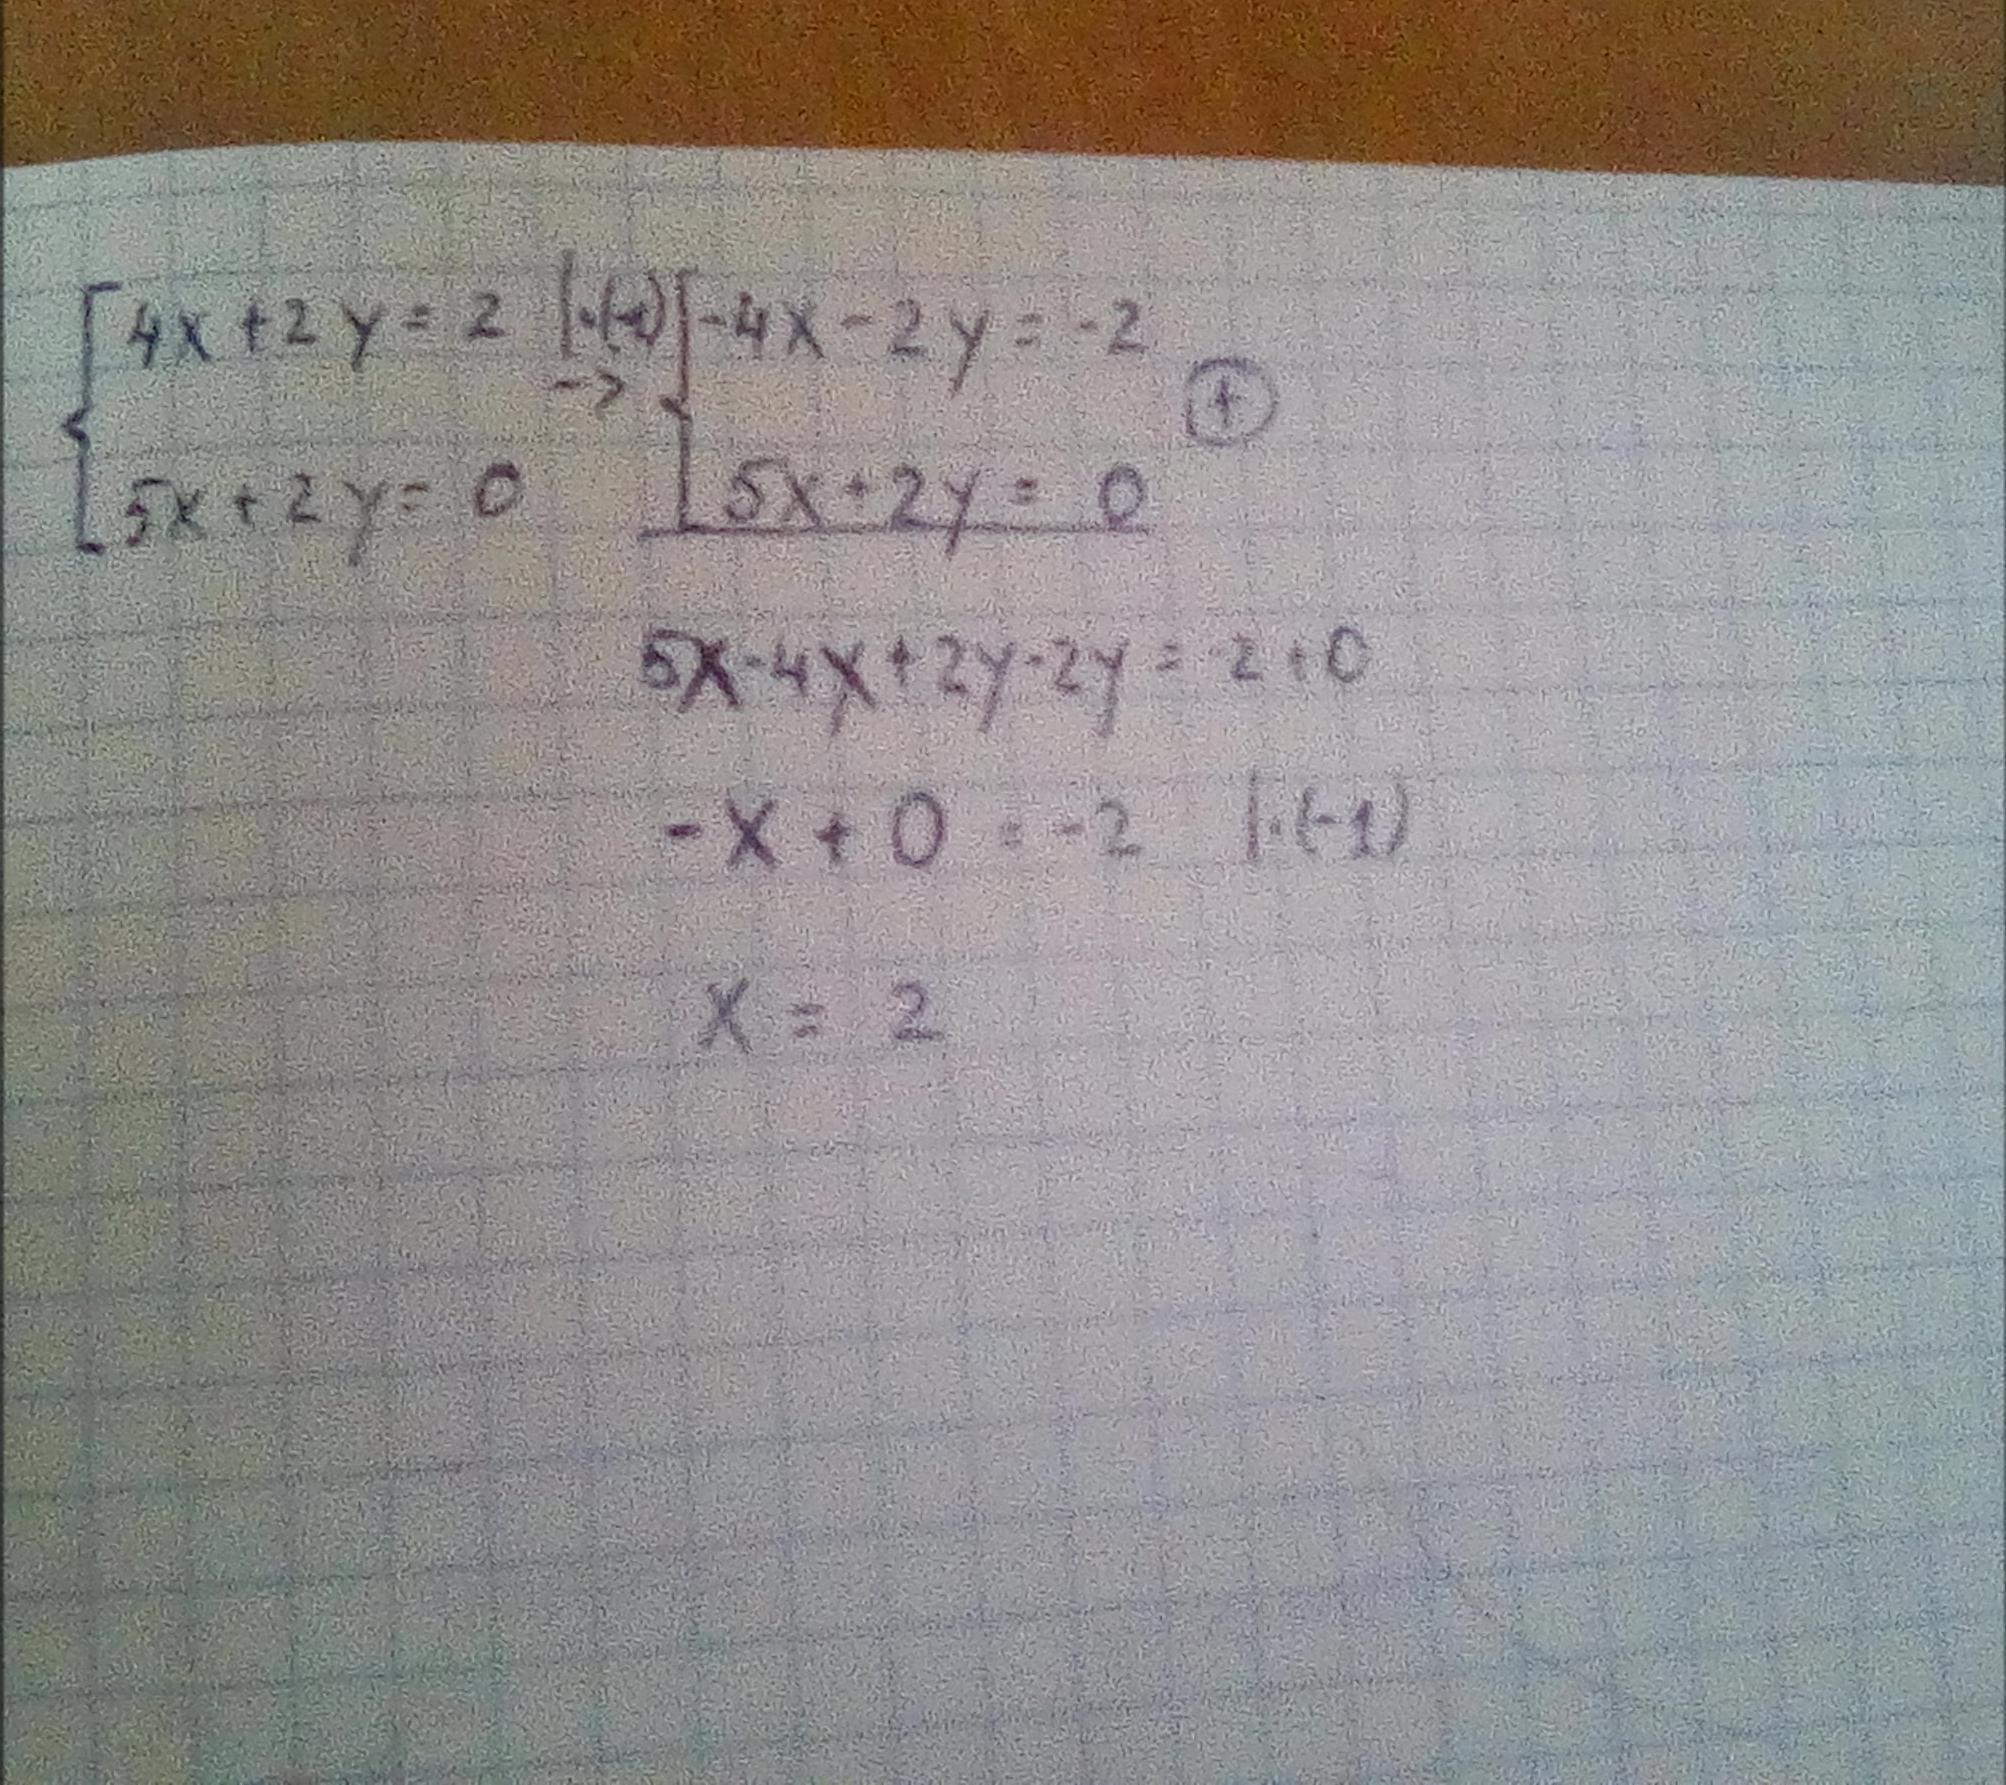 4x+2y=2 |·(-1) -4x-2y=-2
-> +
5x+2y=0 5x+2y=0
5x-4x+2y-2y=-2+0
-x+0=-2 |·(-1)
x=2